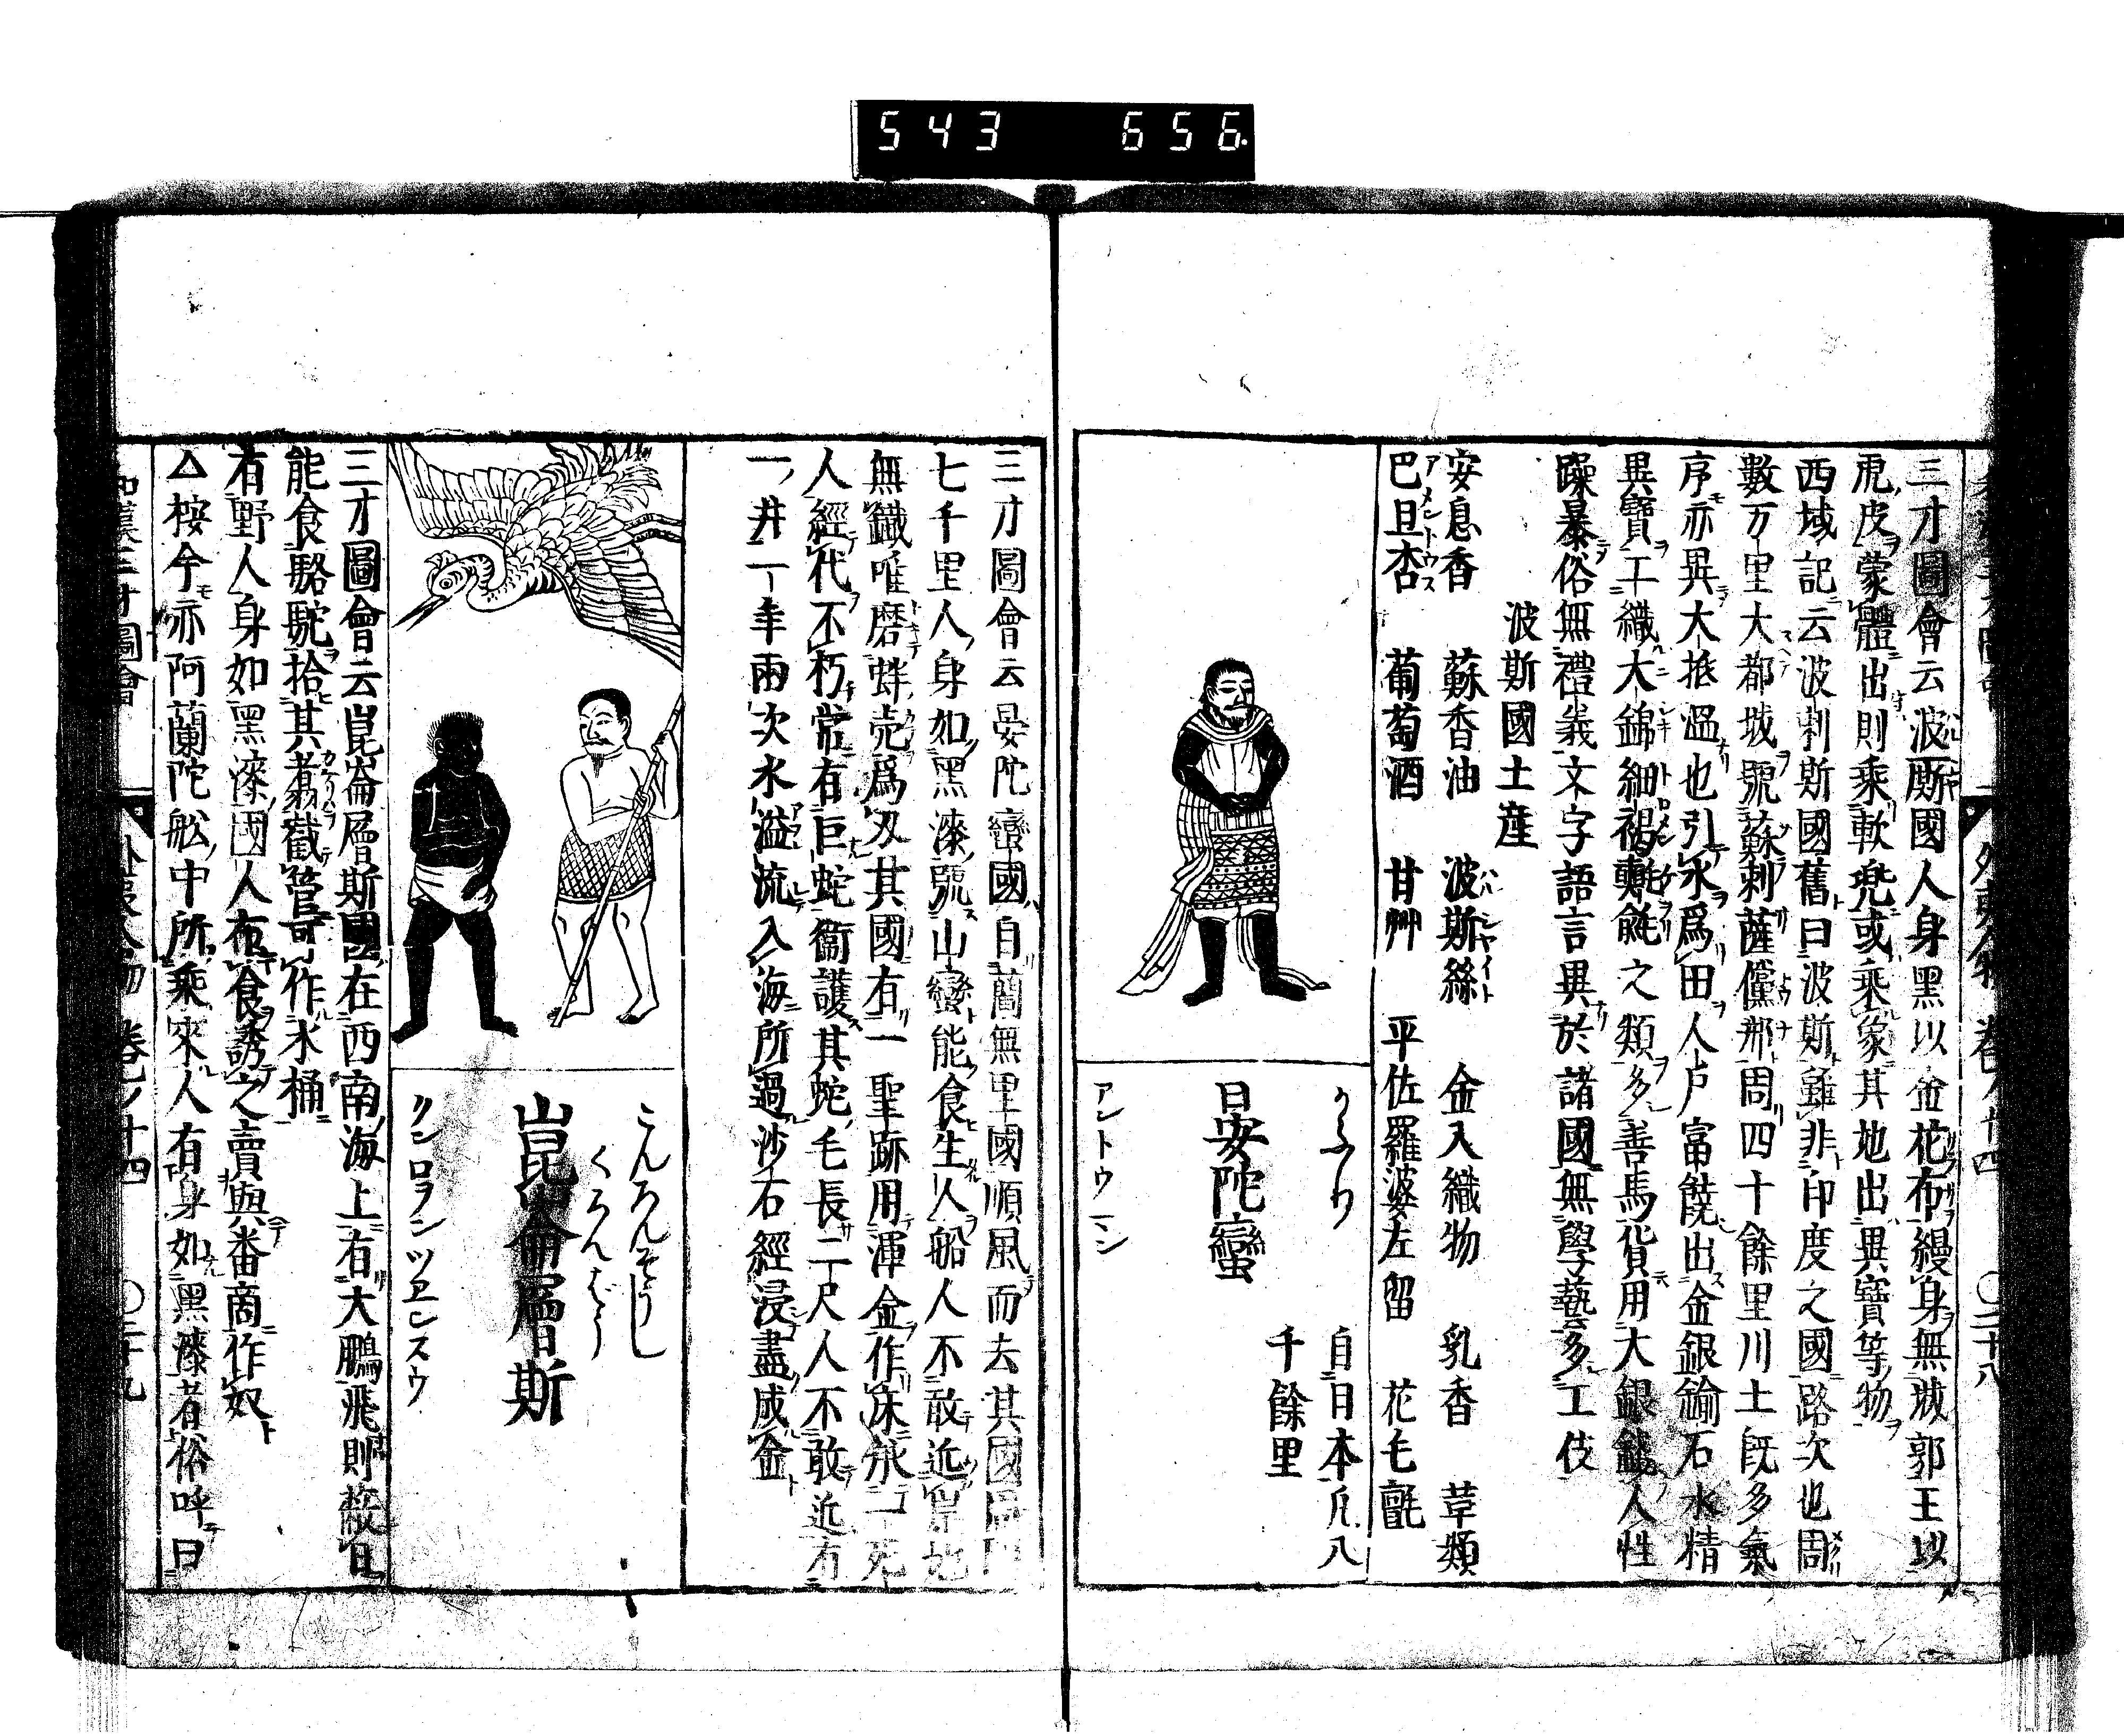 543 656
三才圖會云波斯國人身黑以金花布縵身無城郭王以
虎皮蒙體出則乘軟兜或乘象其地出異寶等物
西域記云波剌斯國舊曰波斯雖非印度之國路次也周
數万里大都城號蘇剌薩儻那周四十餘里川土既多氣
序亦異大抵温也引水爲田人戶富饒出金銀鍮石水精
異寶工織大錦細褐氍毹之類多善馬貨用大銀錢人性
躁暴俗無禮義文字語言異於諸國無學藝多工伎
波斯國土産
安息香 蘇香油 波斯絲 金入織物 乳香 草類
巴旦杏 葡萄酒 甘艸 平佐羅婆左留 花毛氈
アメントウス
ハルシヤイト
自日本凡八
千餘里
晏陀蠻
アントウマン
三才圖會云晏陀蠻國自藺無里國順風而去其國周囬
七千里人身如黑漆號山蠻能食生人船人不敢近岸地
無鐡唯磨蚌売爲刄其國有一聖跡用渾金作床承一死
人經代不朽常有巨蛇衞護其蛇毛長二尺人不敢近有
一井一年兩次水溢流入海所過沙石經浸盡成金
こんろんそうし
くろんばう
崑崙層斯
クンロヲンツヱンスウ
三才圖會云崑崙層斯國在西南海上有大鵬飛則蔽日
能食駱駝拾其翥截管可作水桶
有野人身如黑漆國人布食誘之賣與番商作奴
△桉今亦阿蘭陀舩中所乘來人有身如黑漆者俗呼曰